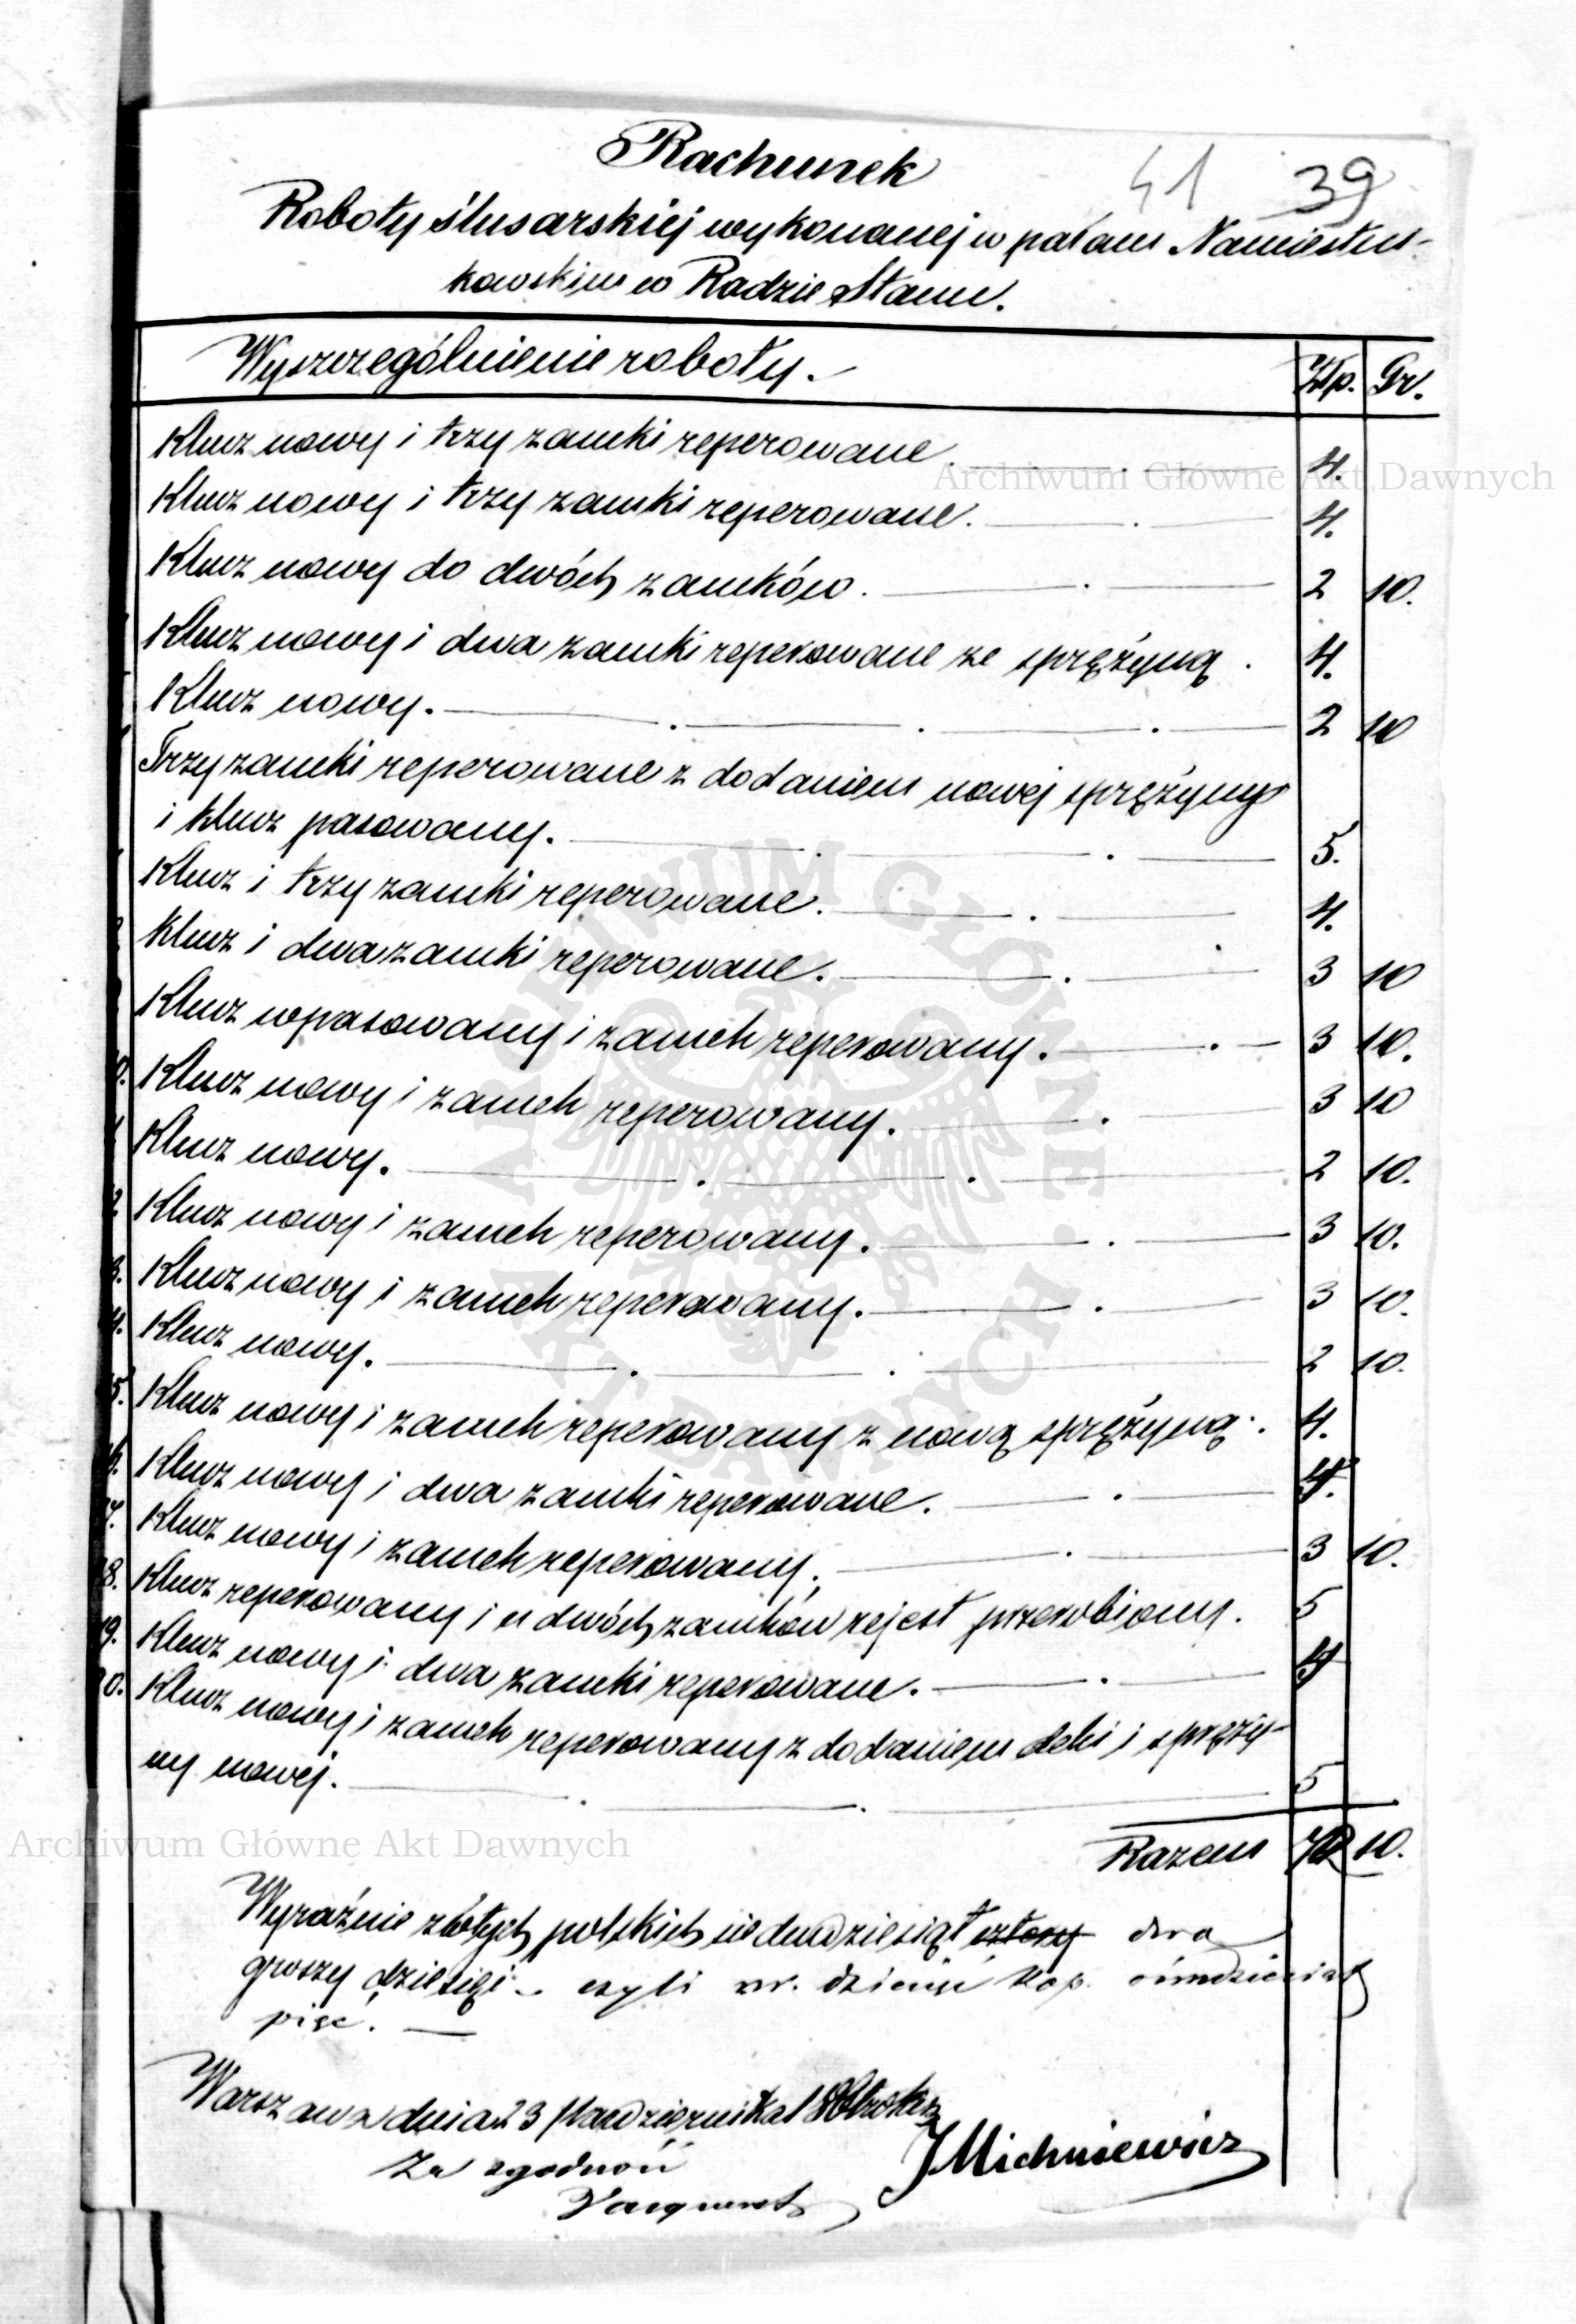 41 39
Rachunek
Roboty ślusarskiej wykonanej w pałacu Namiestni-
kowskim w Radzie Stanu.
Wyszczególnienie roboty. Złp. Gr.
Klucz nowy i trzy zamki reperowane. 4.
Archiwum Główne Akt Dawnych
Klucz nowy i trzy zamki reperowane. 4.
Klucz nowy do dwóch zamków. 2 10.
Klucz nowy i dwa zamki reperowane ze sprężyną. 4.
Klucz nowy. 2 10
Trzy zamki reperowane z dodaniem nowej sprężyny
i klucz pasowany. 5.
Klucz i trzy zamki reperowane. 4.
Klucz i dwa zamki reperowane. 3 10
Klucz wpasowany i zamek reperowany. 3 10.
0. Klucz nowy i zamek reperowany. 3 10
1 Klucz nowy. 2 10.
2 Klucz nowy i zamek reperowany. 3 10.
3. Klucz nowy i zamek reperowany. 3 10.
4. Klucz nowy. 2 10.
5. Klucz nowy i zamek reperowany z nową sprężyną. 4.
6. Klucz nowy i dwa zamki reperowane. 4.
7. Klucz nowy i zamek reperowany. 3 10.
8. Klucz reperowany i u dwóch zamków rejest przerobiony. 5
9. Klucz nowy i dwa zamki reperowane. 4
0. Klucz nowy i zamek reperowany z dodaniem deki i spręży-
ny nowej. 5
Archiwum Główne Akt Dawnych
Razem 72 10.
Wyraźnie złotych polskich siedmdziesiąt cztery dwa
groszy dziesięć czyli rsr. dziesięć kop. ośmdziesiąt
pięć.
Warszawa dnia 23 Października roku
Za zgodność
J Michniewicz
ARCHIWUM GŁÓWNE AKT DAWNYCH